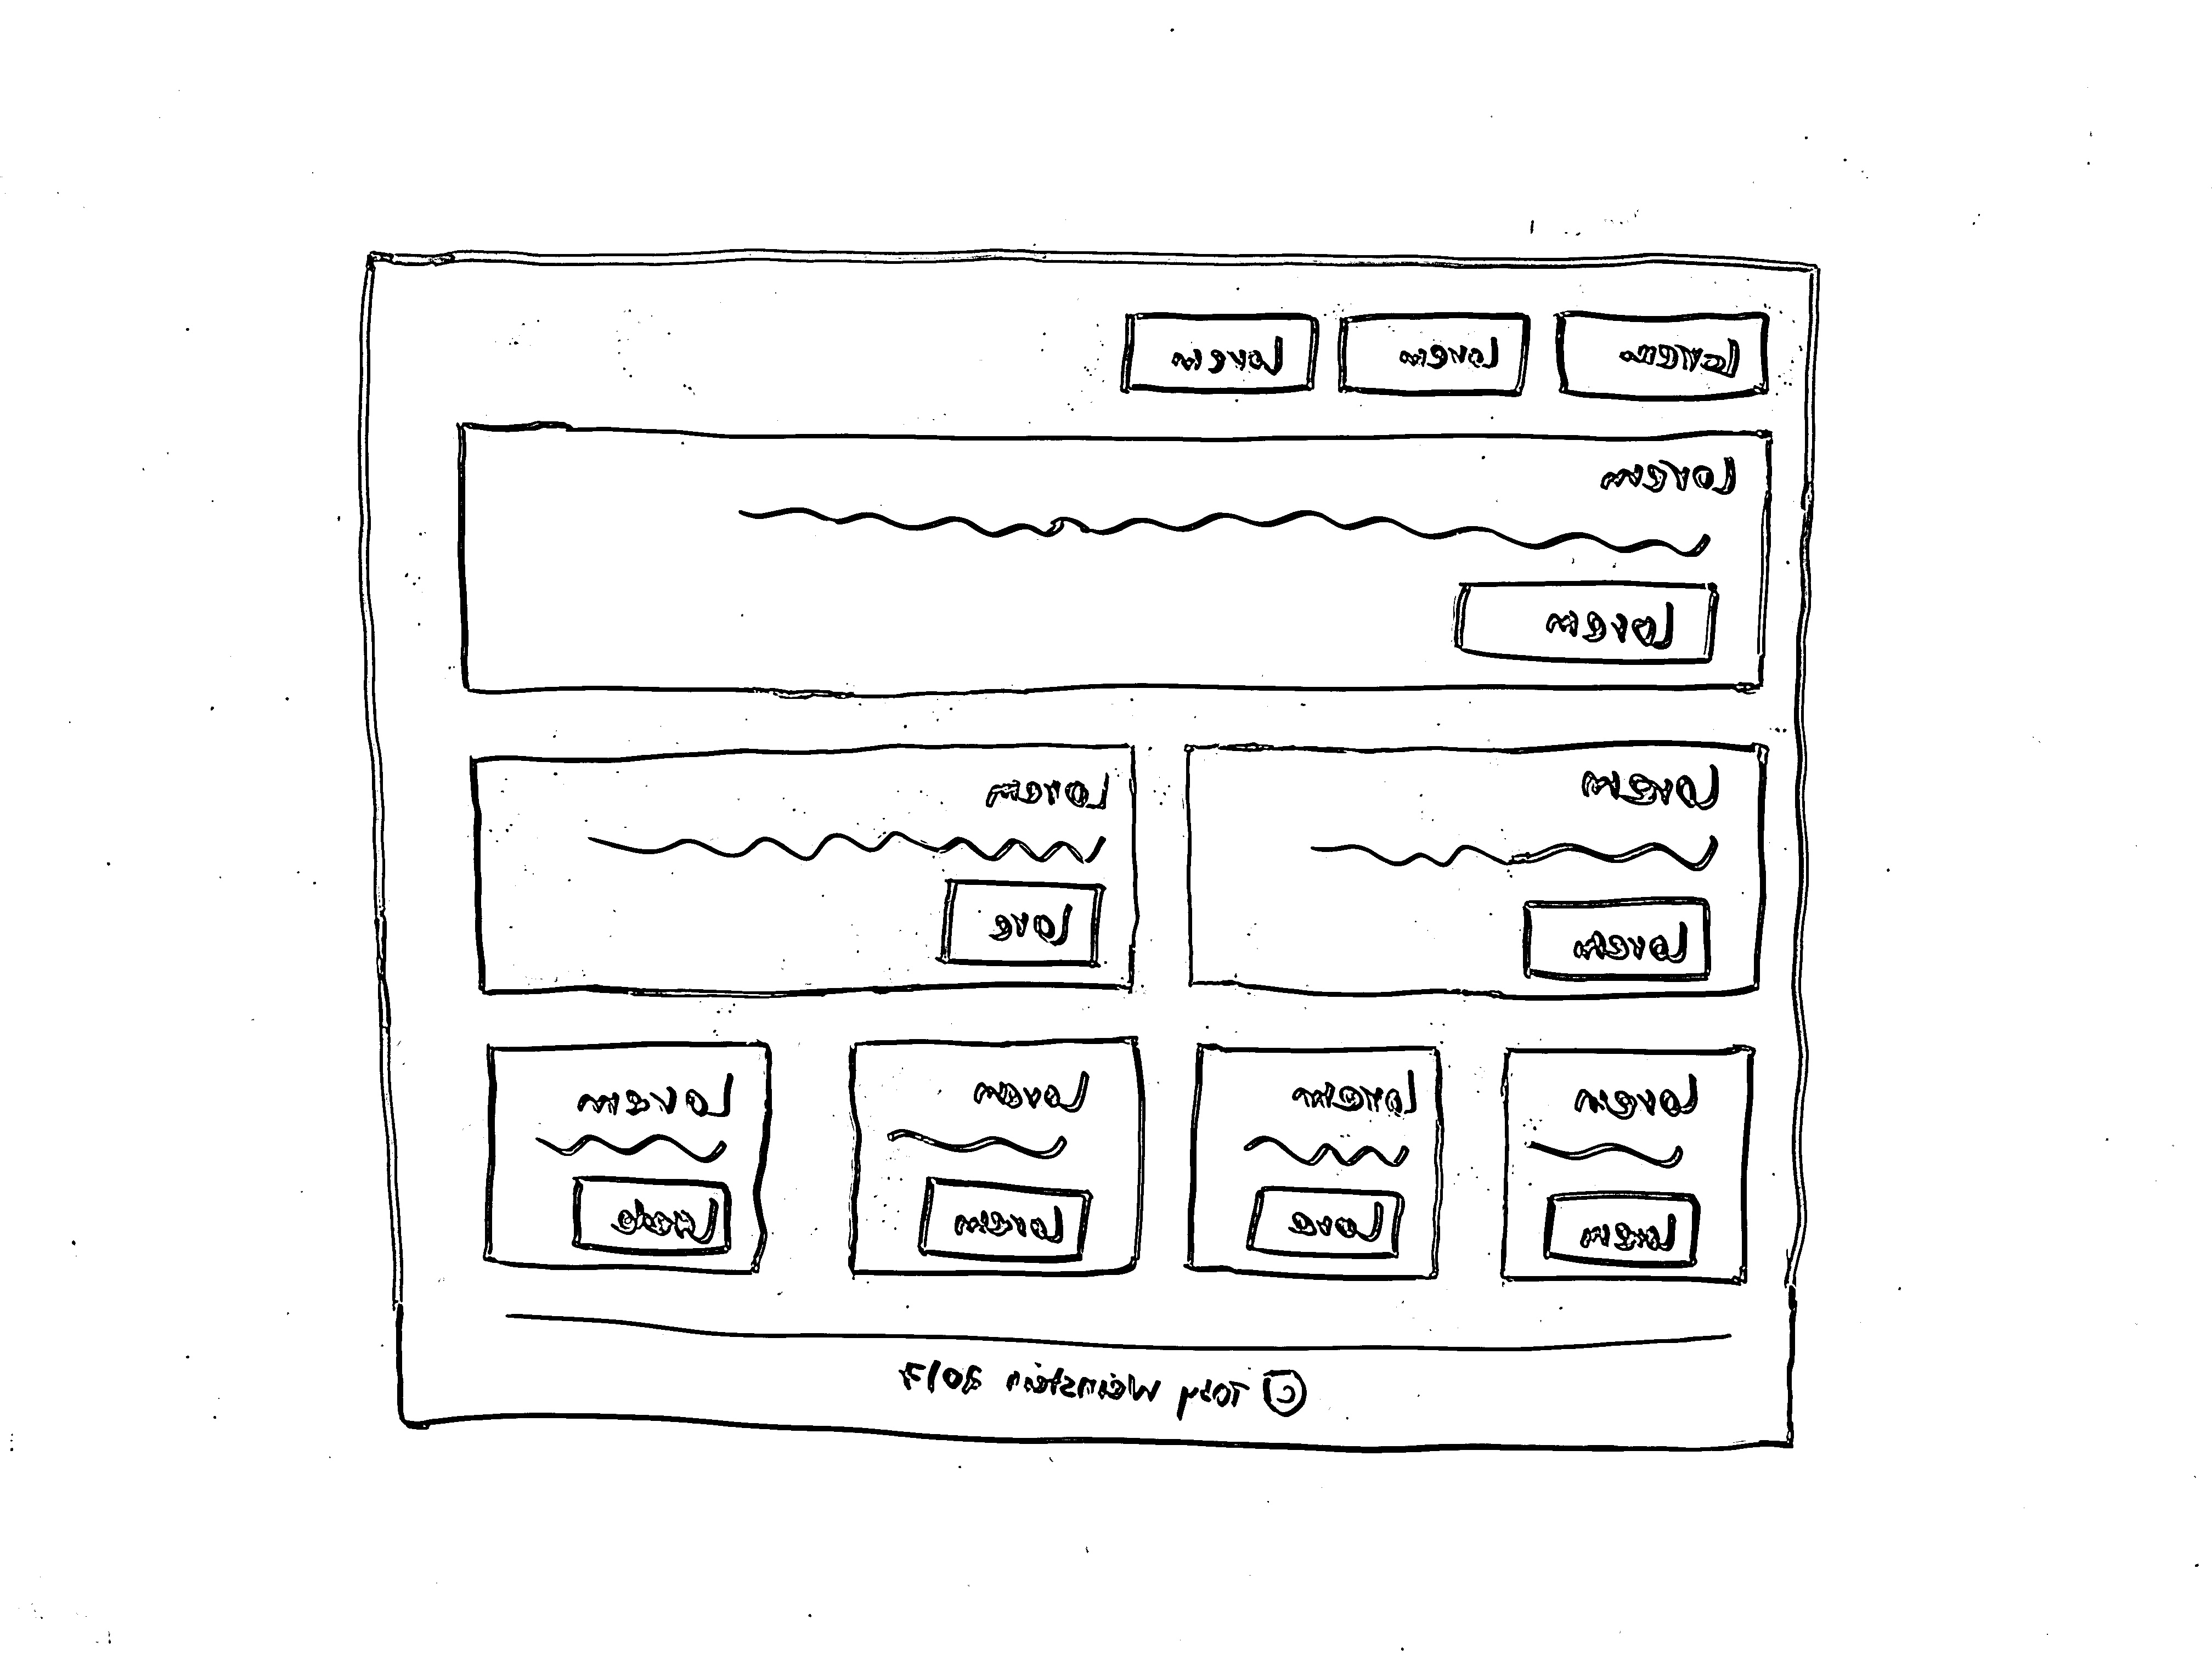 Lorem Lorem Lorem
Lorem
Lorem
Lorem Lorem
Lorem Lore
Lorem Lorem Lorem Lorem
Lorem Lore Lorem
© Toby Weinstein 2017